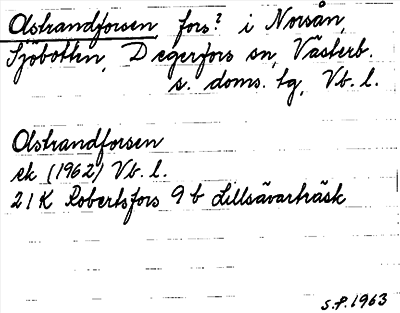 Olstrandforsen, fors? i Norsån,
Sjöbotten, Degerfors sn, Västerb.
s. doms. tg, Vb. l.
Olstrandforsen
ek (1962) Vb. l.
21K Robertsfors 9 b Lillsävarträsk
S.P. 1963